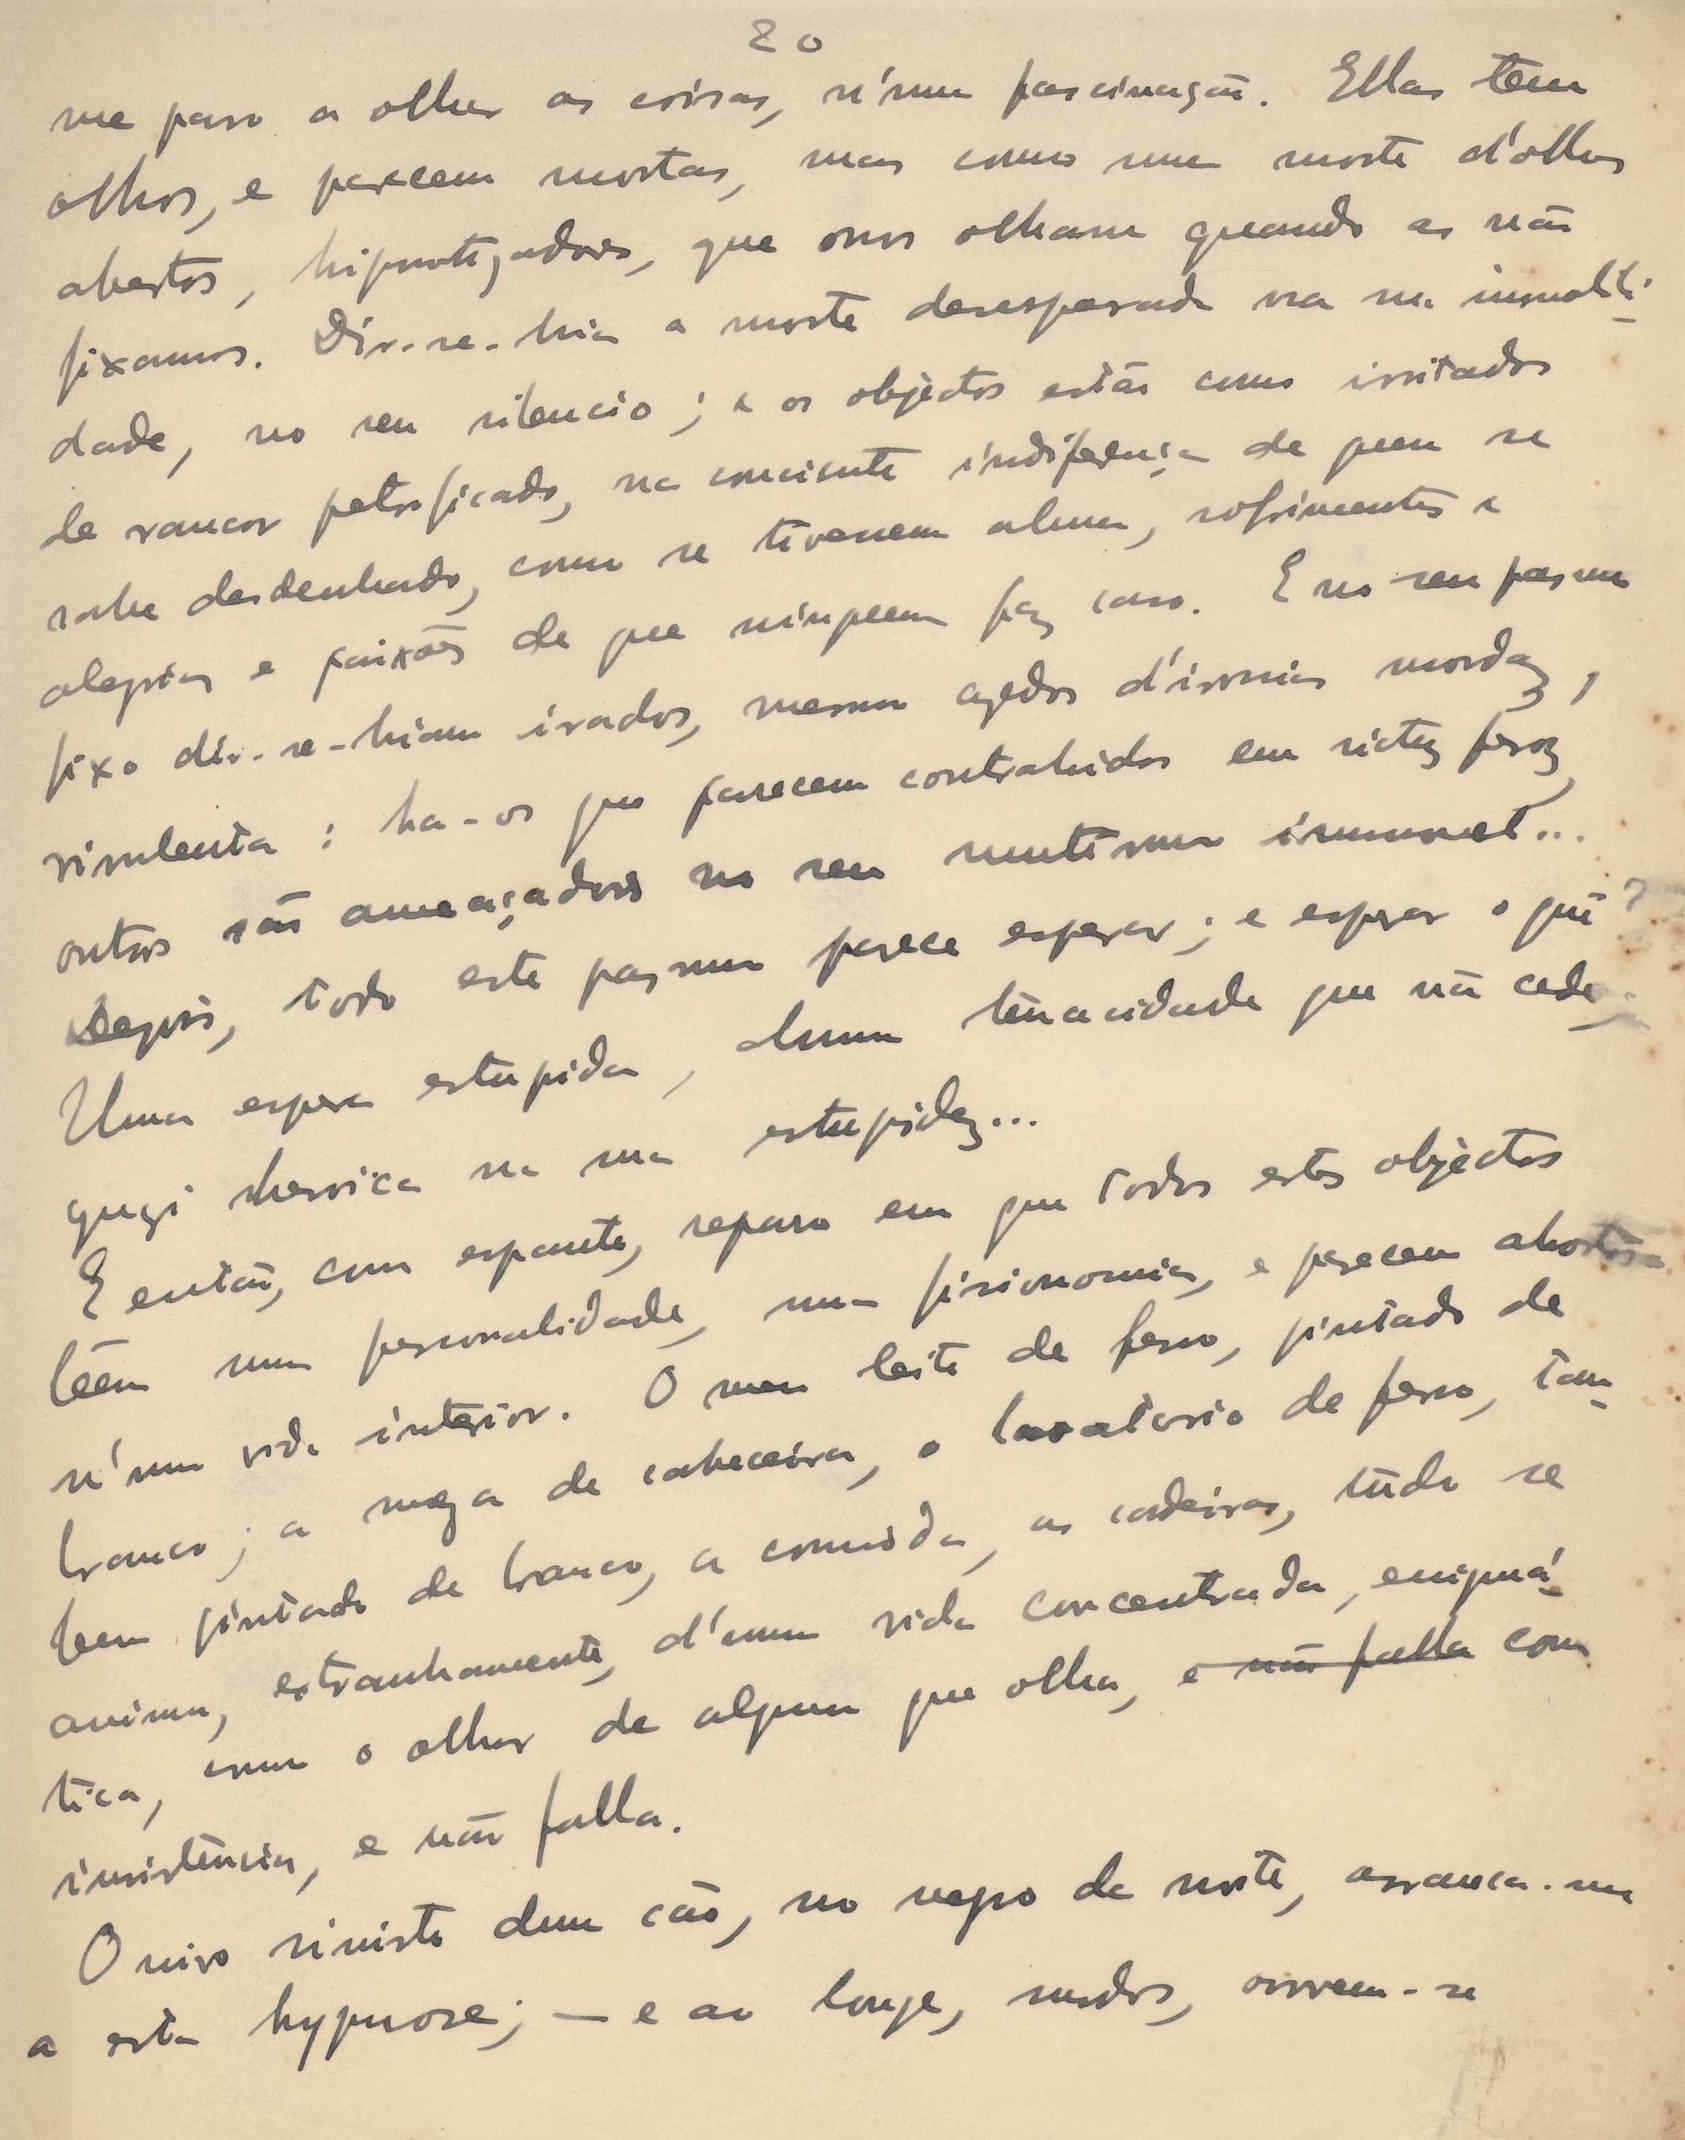 20
me paro a olhar as coisas, n'uma fascinação. Ellas teem
olhos, e parecem mortas, mas como uma morte d'olhos
abertos, hipnotizadores, que nos olham quando as não
fixamos. Dir-se-hia a morte desesperada na sua immobili-
dade, no seu silencio; e os objectos estão como irritados
de rancor petrificado, na consciente indiferença de quem se
sabe desdenhado, como se tivessem alma, sofrimentos e
alegrias e paixões de que ninguem faz caso. E no seu pasmo
fixo dir-se-hiam irados, mesmo azedos d'ironia mordaz,
virulenta: ha-os que parecem contrahidos em rictus feroz,
outros são ameaçadores no seu mutismo immovel...
Depois, todo este pasmo parece esperar; e esperar o quê?
Uma espera estupida, duma tenacidade que não cede,
quasi heroica na sua estupidez...
E então, com espanto, reparo em que todos estes objectos
têem uma personalidade, uma fisionomia, e parecem absortos
n'uma vida interior. O meu leito de ferro, pintado de
branco; a meza de cabeceira, o lavatorio de ferro, tam-
bem pintado de branco, a comoda, as cadeiras, tudo se
anima, estranhamente, d'uma vida concentrada, enigmá-
tica, como o olhar de alguem que olha, e não falla com
insistência, e não falla.
O uivo sinistro dum cão, no negro da noite, arranca-me
a esta hypnose; — e ao longe, surdos, ouvem-se